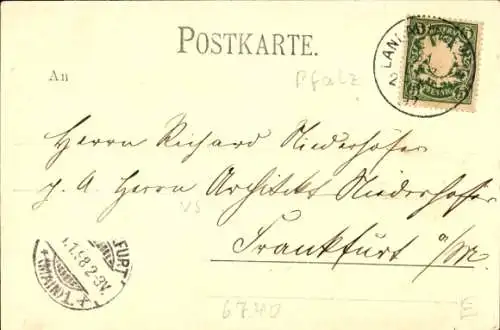 POSTKARTE.
An
Pfalz
LAN
2
Herrn Richard Niederhöfer
p. A. Herrn Architekt Niederhöfer
VS
Frankfurt a/M.
FURT
1.98 2-3N.
* (MAIN) *
67.40
E